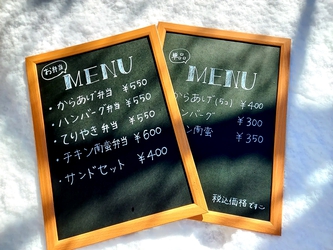 お弁当
MENU
・からあげ弁当 ¥550
・ハンバーグ弁当 ¥550
・てりやき弁当 ¥550
・チキン南蛮弁当 ¥600
・サンドセット ¥400
単品
MENU
からあげ(5コ) ¥400
ハンバーグ ¥300
南蛮 ¥350
税込価格です